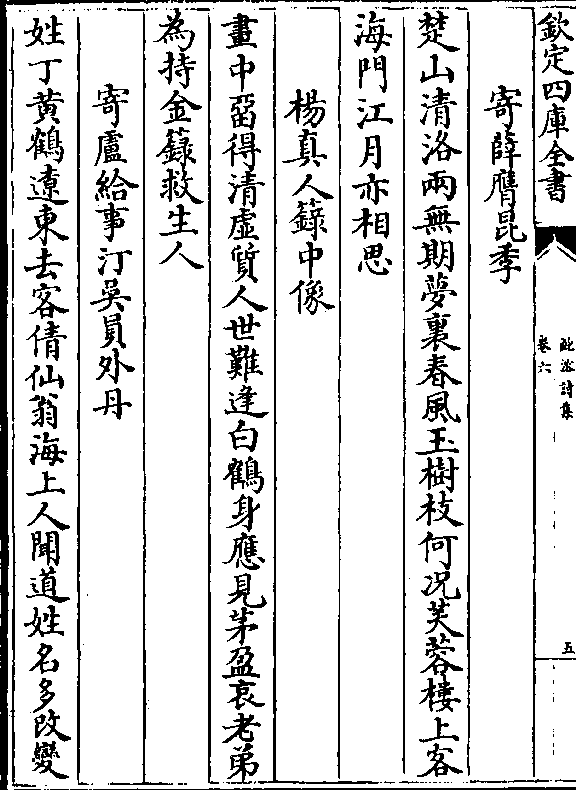 欽定四庫全書
卷六
五
寄薛膺昆季
楚山清洛兩無期夢裏春風玉樹枝何况芙蓉樓上客
海門江月亦相思
楊真人籙中像
畫中㽞得清虛質人世難逢白鶴身應見茅盈哀老弟
為持金籙救生人
寄盧給事汀吳員外丹
姓丁黃鶴遼東去客倩仙翁海上人聞道姓名多改變